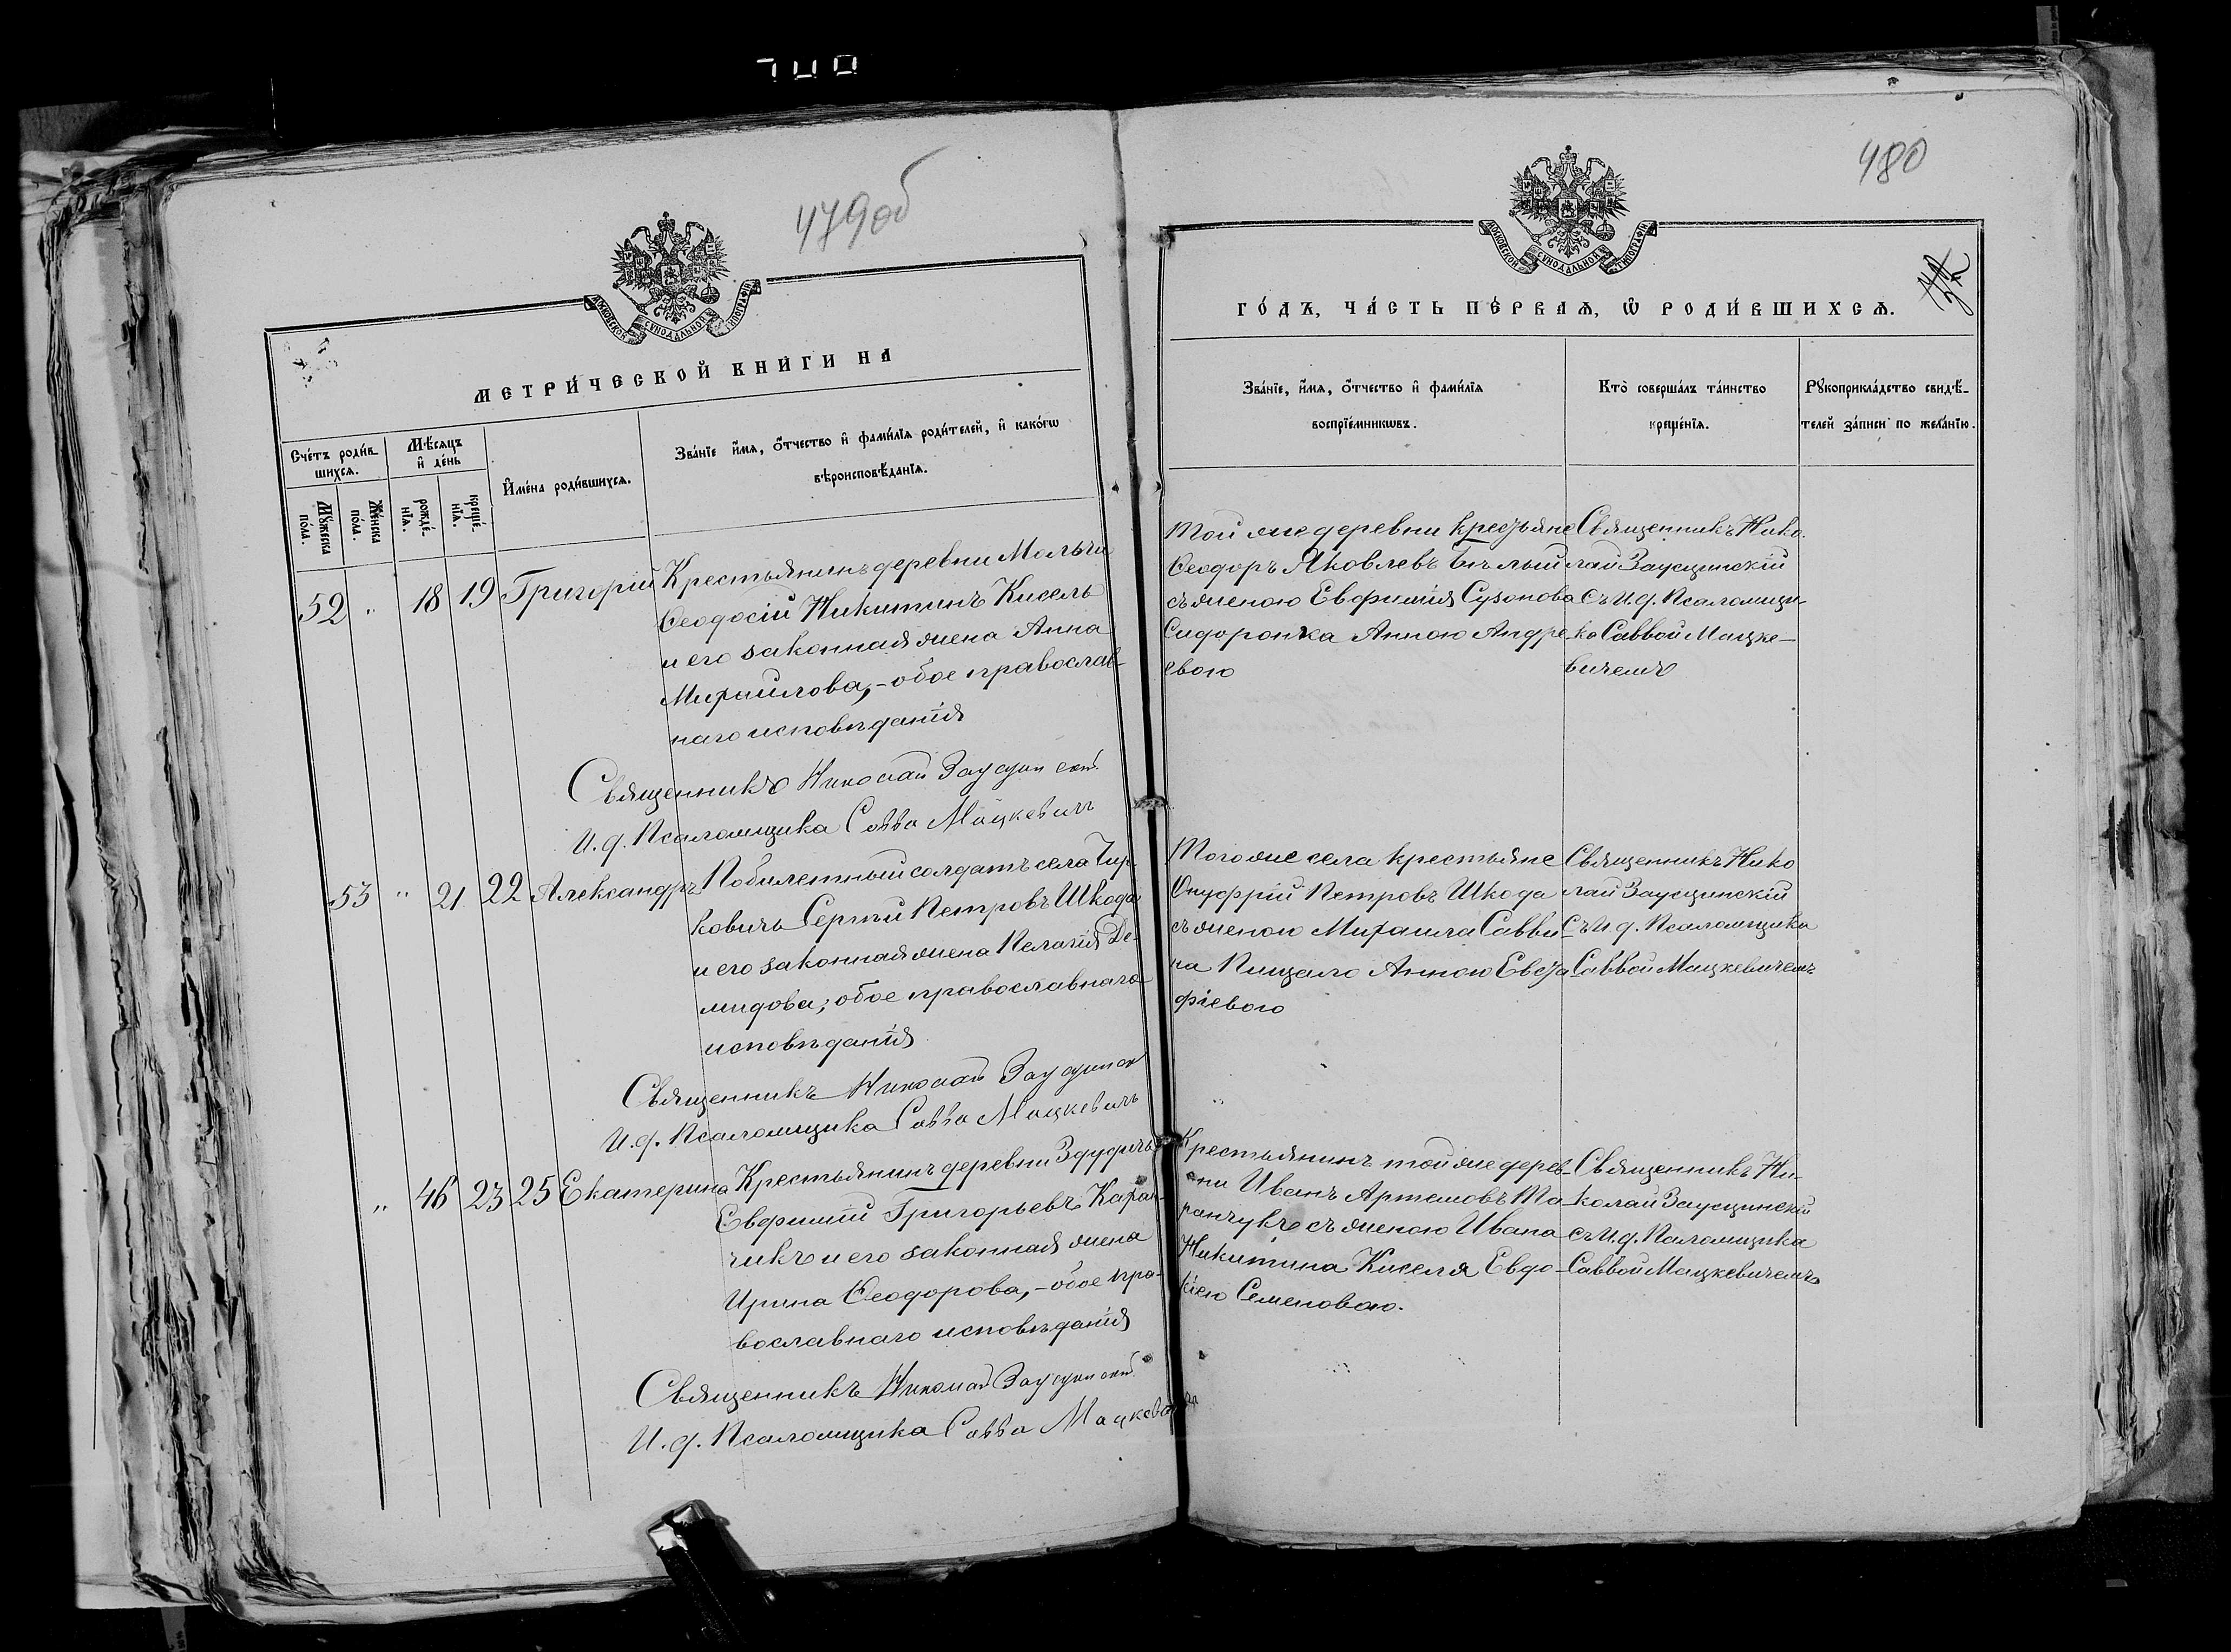 700
479об
МОСКОВСКОЙ СѴНОДАЛЬНОЙ ТИПОГРАФІИ
МЕТРИ́ЧЕСКОЙ КНИ́ГИ НА
Сче́тъ роди́в-
шихсѧ.
Мѣ́сяцъ
и҆ де́нь
Мꙋ́жеска
по́ла.
Же́нска
по́ла.
рожде́-
нїѧ.
креще́-
нїѧ.
И҆мена̀ роди́вшихсѧ.
Зва́нїе и҆́мѧ, ѻ҆́тчество и҆ фами́лїѧ роди́телей, и҆ како́гѡ
вѣроисповѣ́данїѧ.
52 " 18 19 Григорій Крестьянинъ деревни Мольча
Ѳеодосій Никитинъ Кисель
и его законная жена Анна
Михаилова, - обое православ-
наго исповѣданія
Священникъ Николай Заусцинскій
И.д. Псаломщика Савва Мацкевичъ
53 " 21 22 Александръ Побилетный солдатъ села Тир-
ковичъ Сергій Петровъ Шкода
и его законная жена Пелагія Де-
мидова; обое православнаго
исповѣданія
Священникъ Николай Заусцинскій
И.д. Псаломщика Савва Мацкевичъ
" 46 23 25 Екатерина Крестьянинъ деревни Здудичъ
Евфимій Григорьевъ Харан-
чикъ и его законная жена
Ирина Ѳеодорова, - обое пра-
вославнаго исповѣданія
Священникъ Николай Заусцинскій
И.д. Псаломщика Савва Мацкевичъ
480
МОСКОВСКОЙ СѴНОДАЛЬНОЙ ТИПОГРАФІИ
ГО́ДЪ, ЧА́СТЬ ПЕ́РВАѦ, Ѡ҆ РОДИ́ВШИХСѦ.
Зва́нїе, и҆́мѧ, ѻ҆́тчество и҆ фами́лїѧ
воспрїе́мникѡвъ.
Кто̀ соверша́лъ та́инство
креще́нїѧ.
Рꙋкоприкла́дство свидѣ́-
телей за́писи по жела́нїю.
Той же деревни крестьяне
Ѳеодоръ Яковлевъ Бѣлый
съ женою Евфимія Сузонова
Сидоронка Анною Андре-
евою
Священникъ Нико-
лай Заусцинскій
съ И.д. Псаломщи-
ка Саввой Мацке-
вичемъ
Того же села крестьяне
Онуфрій Петровъ Шкода
съ женою Михаила Савви-
на Пищало Анною Евста-
фіевою
Священникъ Нико
лай Заусцинскій
съ И.д. Псаломщика
Саввой Мацкевичемъ
Крестьянинъ той же дерев-
ни Иванъ Артемовъ Та-
ранчукъ съ женою Ивана
Никитина Киселя Евдо-
кіею Семеновою.
Священникъ Ни-
колай Заусцинскій
съ И.д. Псаломщика
Саввой Мацкевичемъ